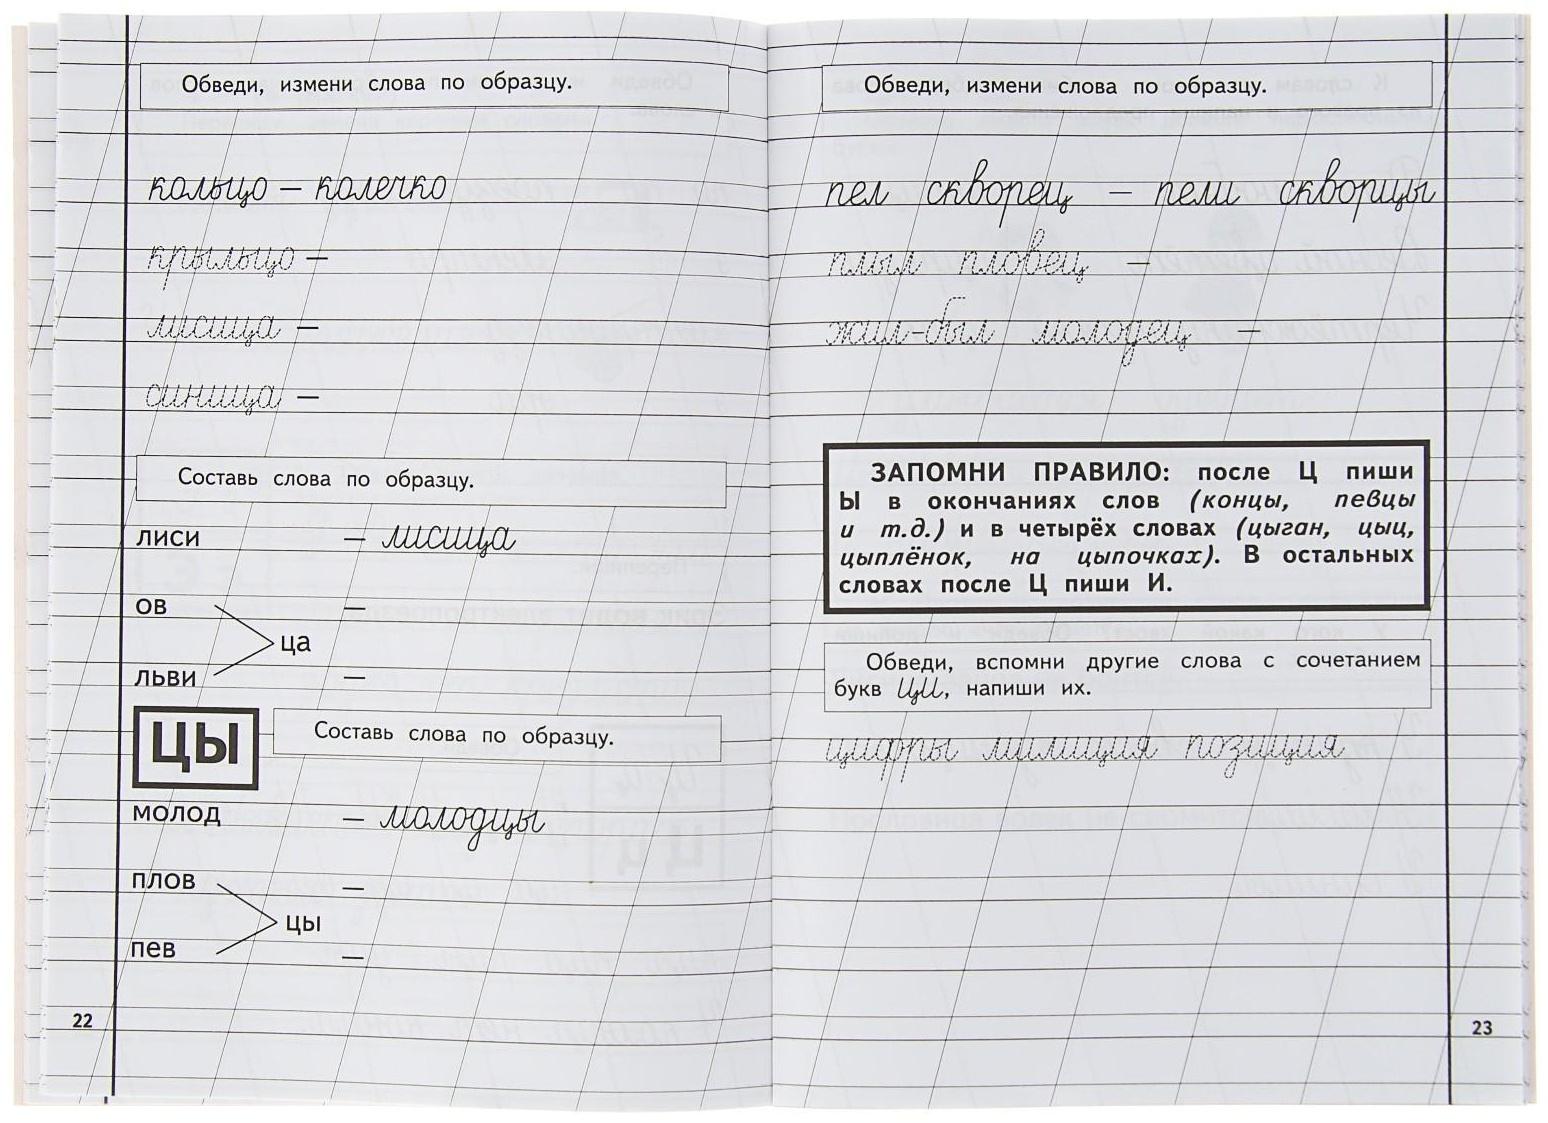 Обведи, измени слова по образцу.
кольцо – колечко
крыльцо –
лисица –
синица –
Составь слова по образцу.
лиси – лисица
ов –
ца
льви –
ЦЫ
Составь слова по образцу.
молод – молодцы
плов –
цы
пев –
22
Обведи, измени слова по образцу.
пел скворец – пели скворцы
плыл пловец –
жил-был молодец –
ЗАПОМНИ ПРАВИЛО: после Ц пиши
Ы в окончаниях слов (концы, певцы
и т.д.) и в четырёх словах (цыган, цыц,
цыплёнок, на цыпочках). В остальных
словах после Ц пиши И.
Обведи, вспомни другие слова с сочетанием
букв ци, напиши их.
цифры милиция позиция
23